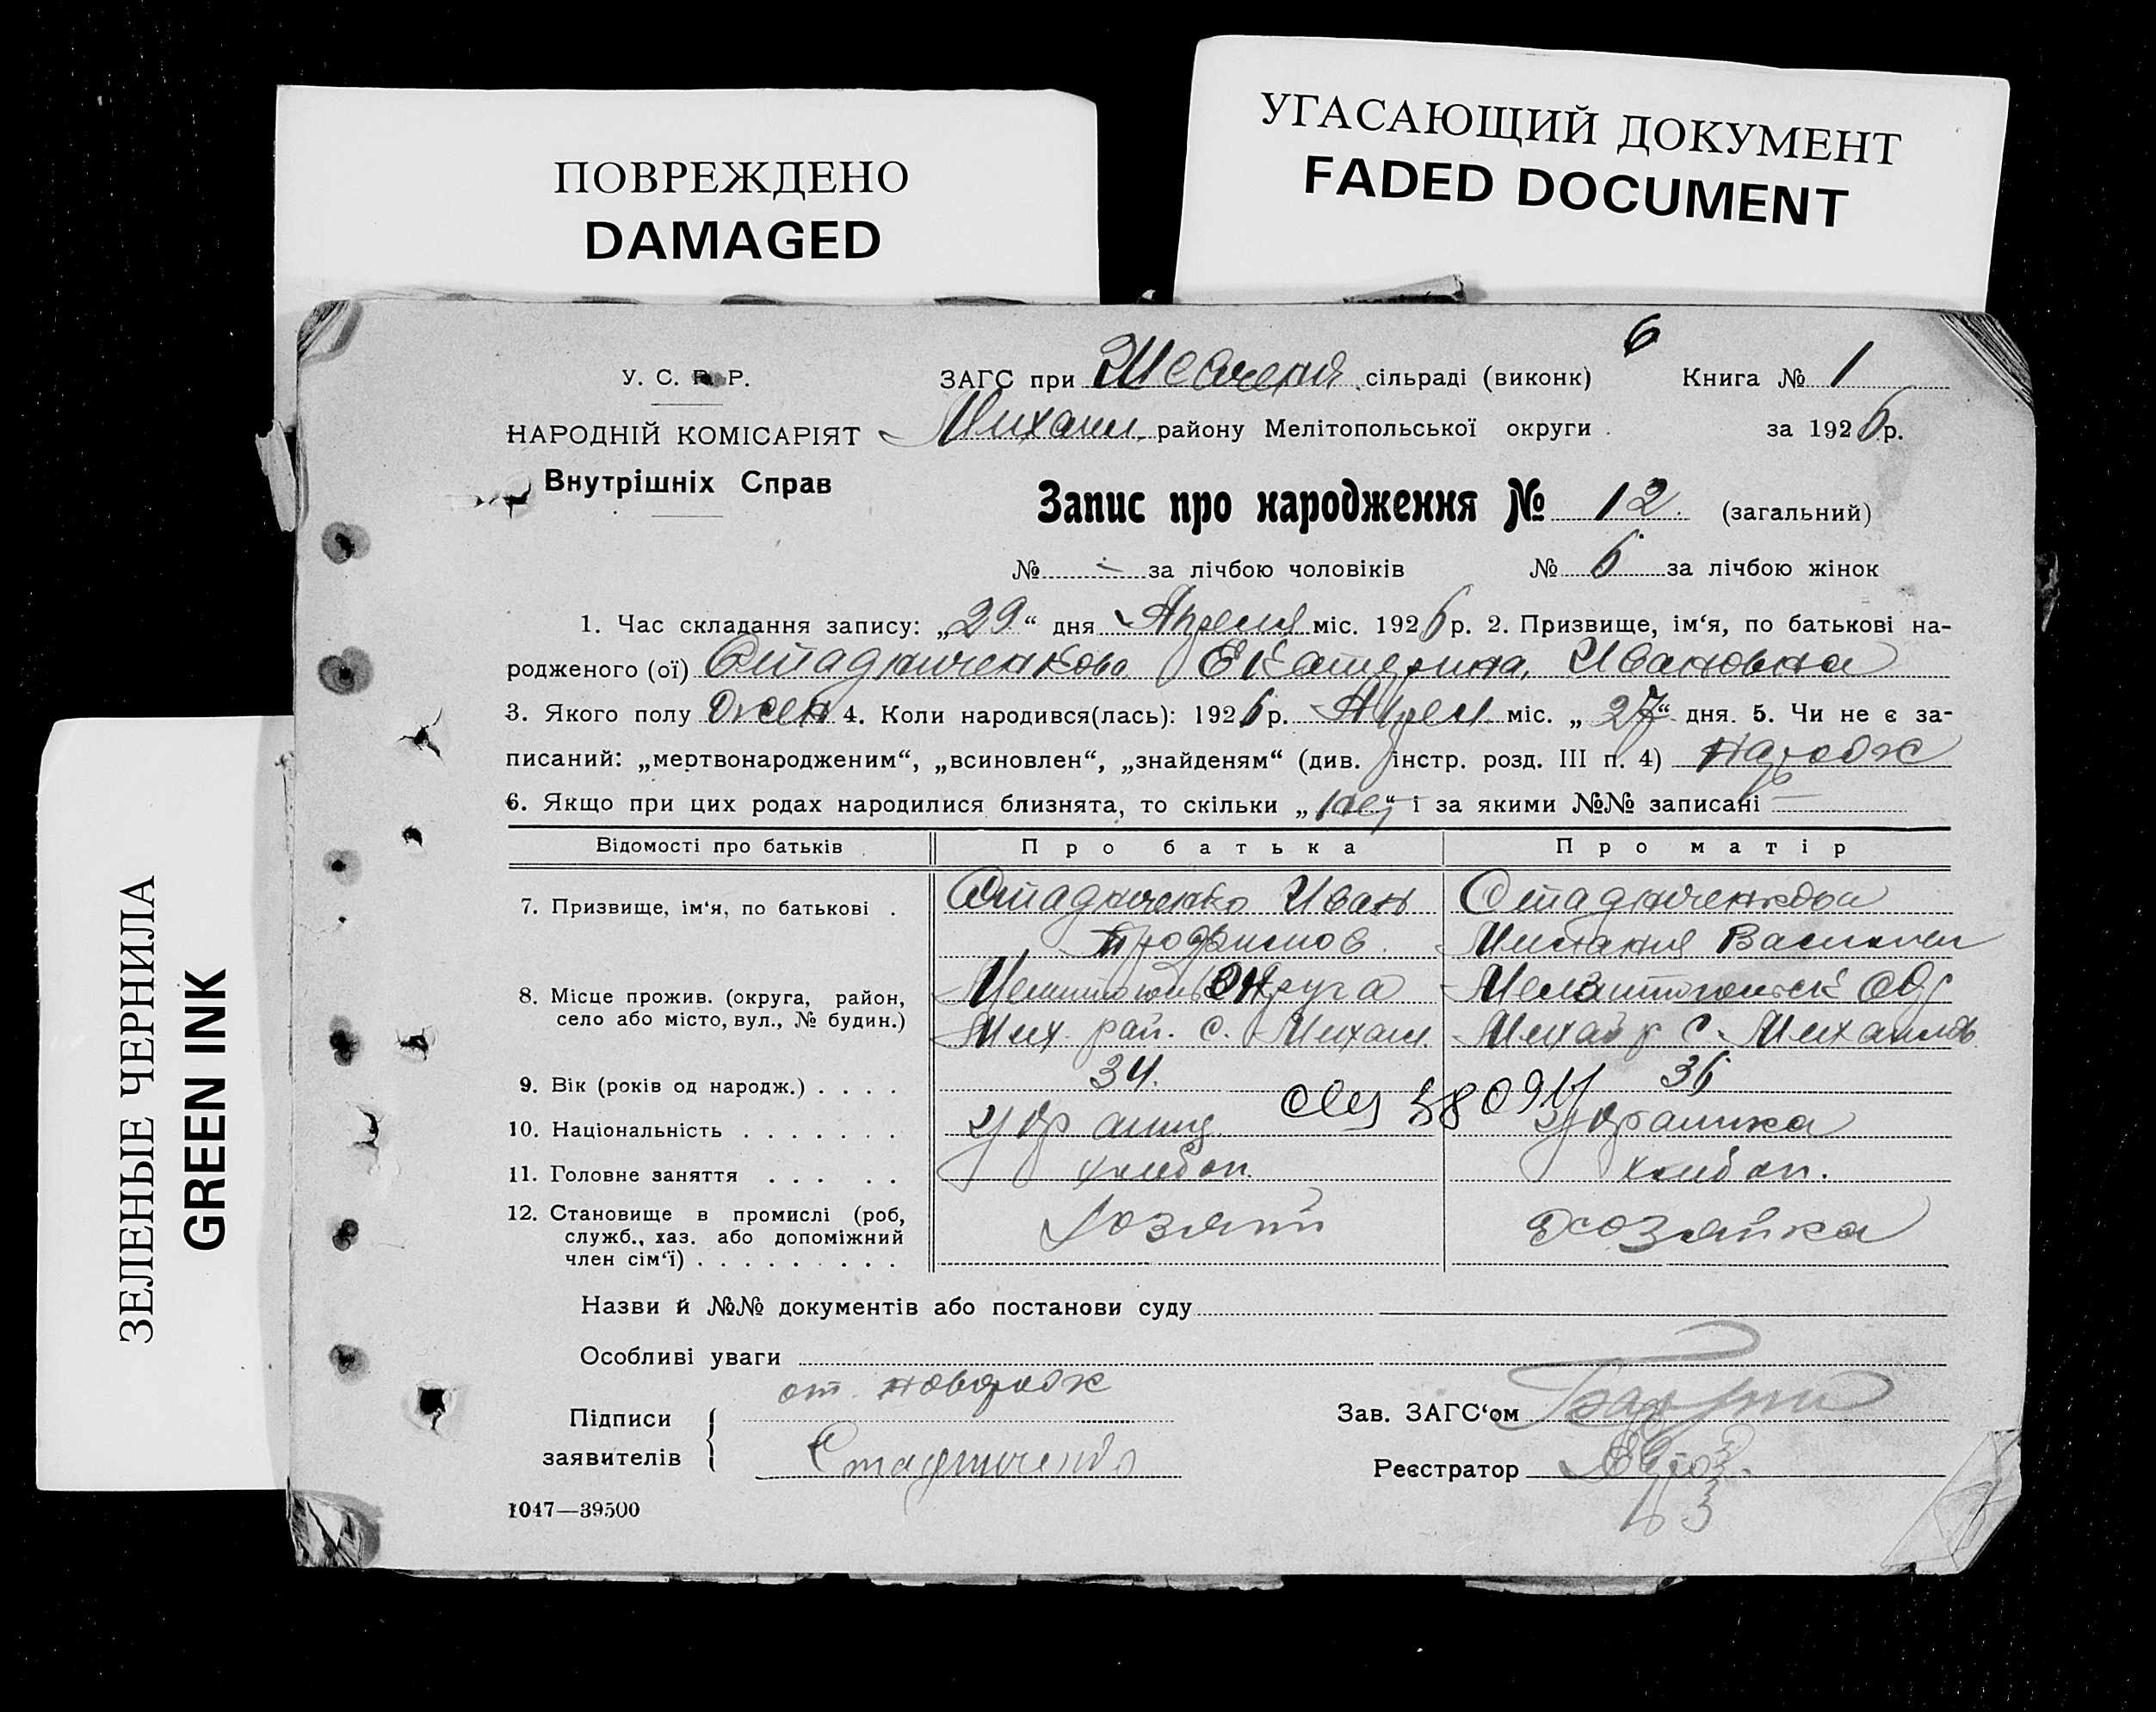 ПОВРЕЖДЕНО
DAMAGED
УГАСАЮЩИЙ ДОКУМЕНТ
FADED DOCUMENT
ЗЕЛЕНЫЕ ЧЕРНИЛА
GREEN INK
6
У. С. Р. Р.
НАРОДНІЙ КОМІСАРІЯТ
Внутрішніх Справ
ЗАГС при сільраді (виконк) Книга № 1
Михайл. району Мелітопольської округи. за 1926 р.
Запис про народження № 12. (загальний)
№ - за лічбою чоловіків № 6 за лічбою жінок
1. Час складання запису: „29“ дня Апреля міс. 1926 р. 2. Призвище, ім‘я, по батькові на-
родженого (ої) Стадниченкова Екатерина Ивановна
3. Якого полу жен 4. Коли народився(лась): 1926 р. Апрел міс. „27“ дня. 5. Чи не є за-
писаний: „мертвонародженим“, „всиновлен“, „знайденям“ (див. інстр. розд. III п. 4) народж
6. Якщо при цих родах народилися близнята, то скільки „ “ і за якими №№ записані —
Відомості про батьків Про батька Про матір
7. Призвище, ім‘я, по батькові . Стадниченко Иван Стадниченкова
Трофимов. Мелания Василев
8. Місце прожив. (округа, район, село або місто, вул., № будин.) Округа
Мих. рай. с. Михайл. с. Михайлов
9. Вік (років од народж.) . . . . 34. 36
380911
10. Національність . . . . . . . Украинец Украинка
11. Головне заняття . . . . . хлибоп. хлибоп.
12. Становище в промислі (роб, служб., хаз. або допоміжний член сім‘ї) . . . . . . . . . Хозяин Хозяйка
Назви й №№ документів або постанови суду
Особливі уваги
Підписи заявителів
от новорож
Стадниченко
Зав. ЗАГС‘ом
Реєстратор
1047—39500